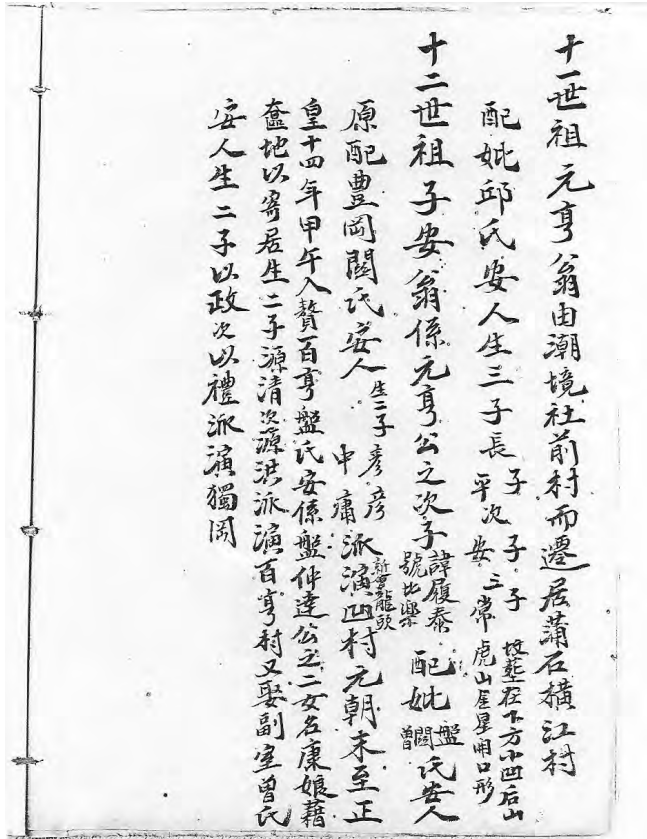 十一世祖元亨翁由潮境社前村而遷居蒲石橫江村
配妣邱氏安人生三子長子平次子安三子常坟塟在下方小凹后山虎山星星開口形
十二世祖子安翁係元亨公之次子諱履泰號比樂配妣盤闗曾氏安人
原配豊岡闗氏安人生二子彥中彥庸派演凹村新會龍頭元朝末至正
皇十四年甲午入贅百亨盤氏安係盤仲達公之二女名康娘藉
奩地以寄居生二子源清次源洪派演百亨村又娶副室曾氏
安人生二子以政次以禮派演獨岡